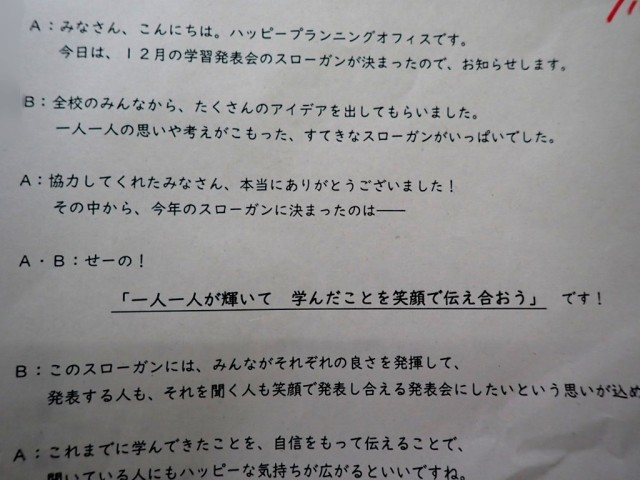 A：みなさん、こんにちは。ハッピープランニングオフィスです。
今日は、１２月の学習発表会のスローガンが決まったので、お知らせします。
B：全校のみんなから、たくさんのアイデアを出してもらいました。
一人一人の思いや考えがこもった、すてきなスローガンがいっぱいでした。
A：協力してくれたみなさん、本当にありがとうございました！
その中から、今年のスローガンに決まったのは――
A・B：せーの！
「一人一人が輝いて　学んだことを笑顔で伝え合おう」　です！
B：このスローガンには、みんながそれぞれの良さを発揮して、
発表する人も、それを聞く人も笑顔で発表し合える発表会にしたいという思いが込め
A：これまでに学んできたことを、自信をもって伝えることで、
聞いている人にもハッピーな気持ちが広がるといいですね。